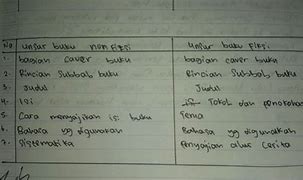 No unsur buku non fiksi Unsur buku Fiksi
1. bagian caver buku bagian caver buku
2. Rincian Subbab buku Rincian Subbab buku
3. Judul Judul
4. Isi Tokoh dan penokohan
5. Cara menyajikan isi buku Tema
6. Bahasa yg digunakan Bahasa yg digunakan
7. Sistematika Penyajian alur cerita